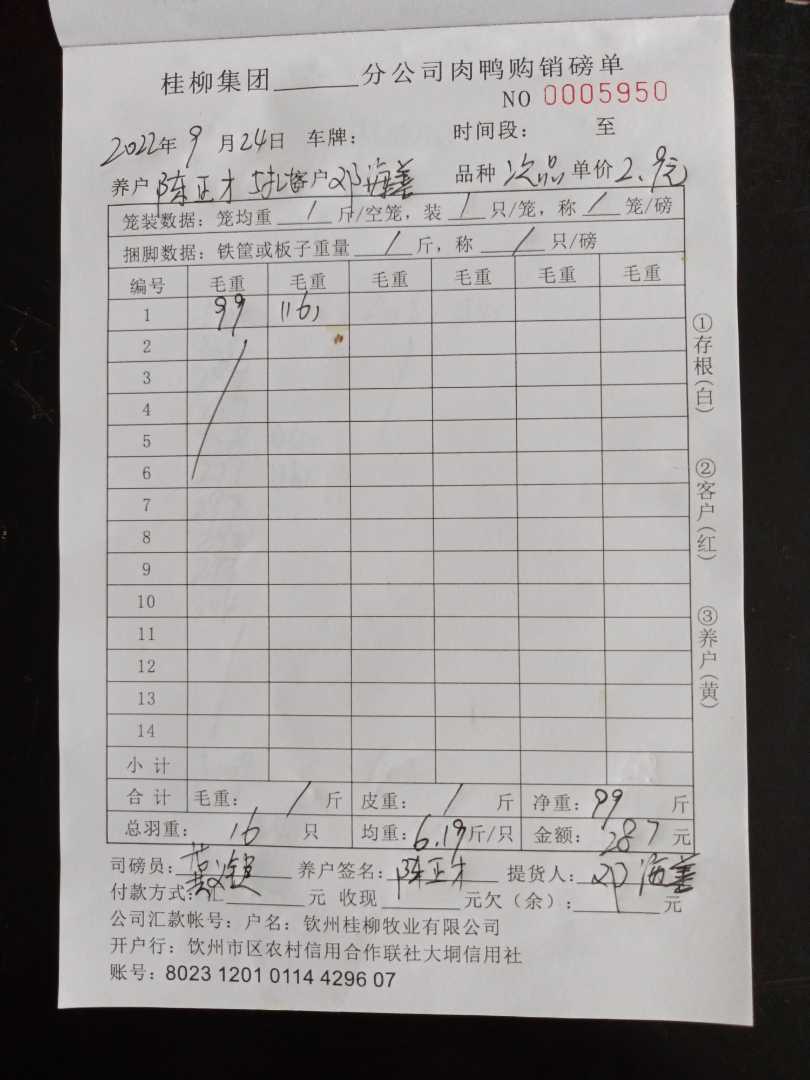 桂柳集团______分公司肉鸭购销磅单
NO 0005950
2022年9月24日 车牌: 时间段: 至
养户 陈正才 客户 邓海善 品种 次品 单价 2.9元
笼装数据: 笼均重 / 斤/空笼, 装 / 只/笼, 称 / 笼/磅
捆脚数据: 铁筐或板子重量 / 斤, 称 / 只/磅
编号 毛重 毛重 毛重 毛重 毛重 毛重
1 99 116)
2
3
4
5
6
7
8
9
10
11
12
13
14
小计
合计 毛重: / 斤 皮重: / 斤 净重: 99 斤
总羽重: 16 只 均重: 6.19斤/只 金额: 287 元
司磅员: 养户签名: 陈正才 提货人: 邓海善
付款方式: 汇______元 收现______元欠(余): ______元
公司汇款帐号: 户名: 钦州桂柳牧业有限公司
开户行: 钦州市区农村信用合作联社大垌信用社
账号: 8023 1201 0114 4296 07
①存根(白)
②客户(红)
③养户(黄)